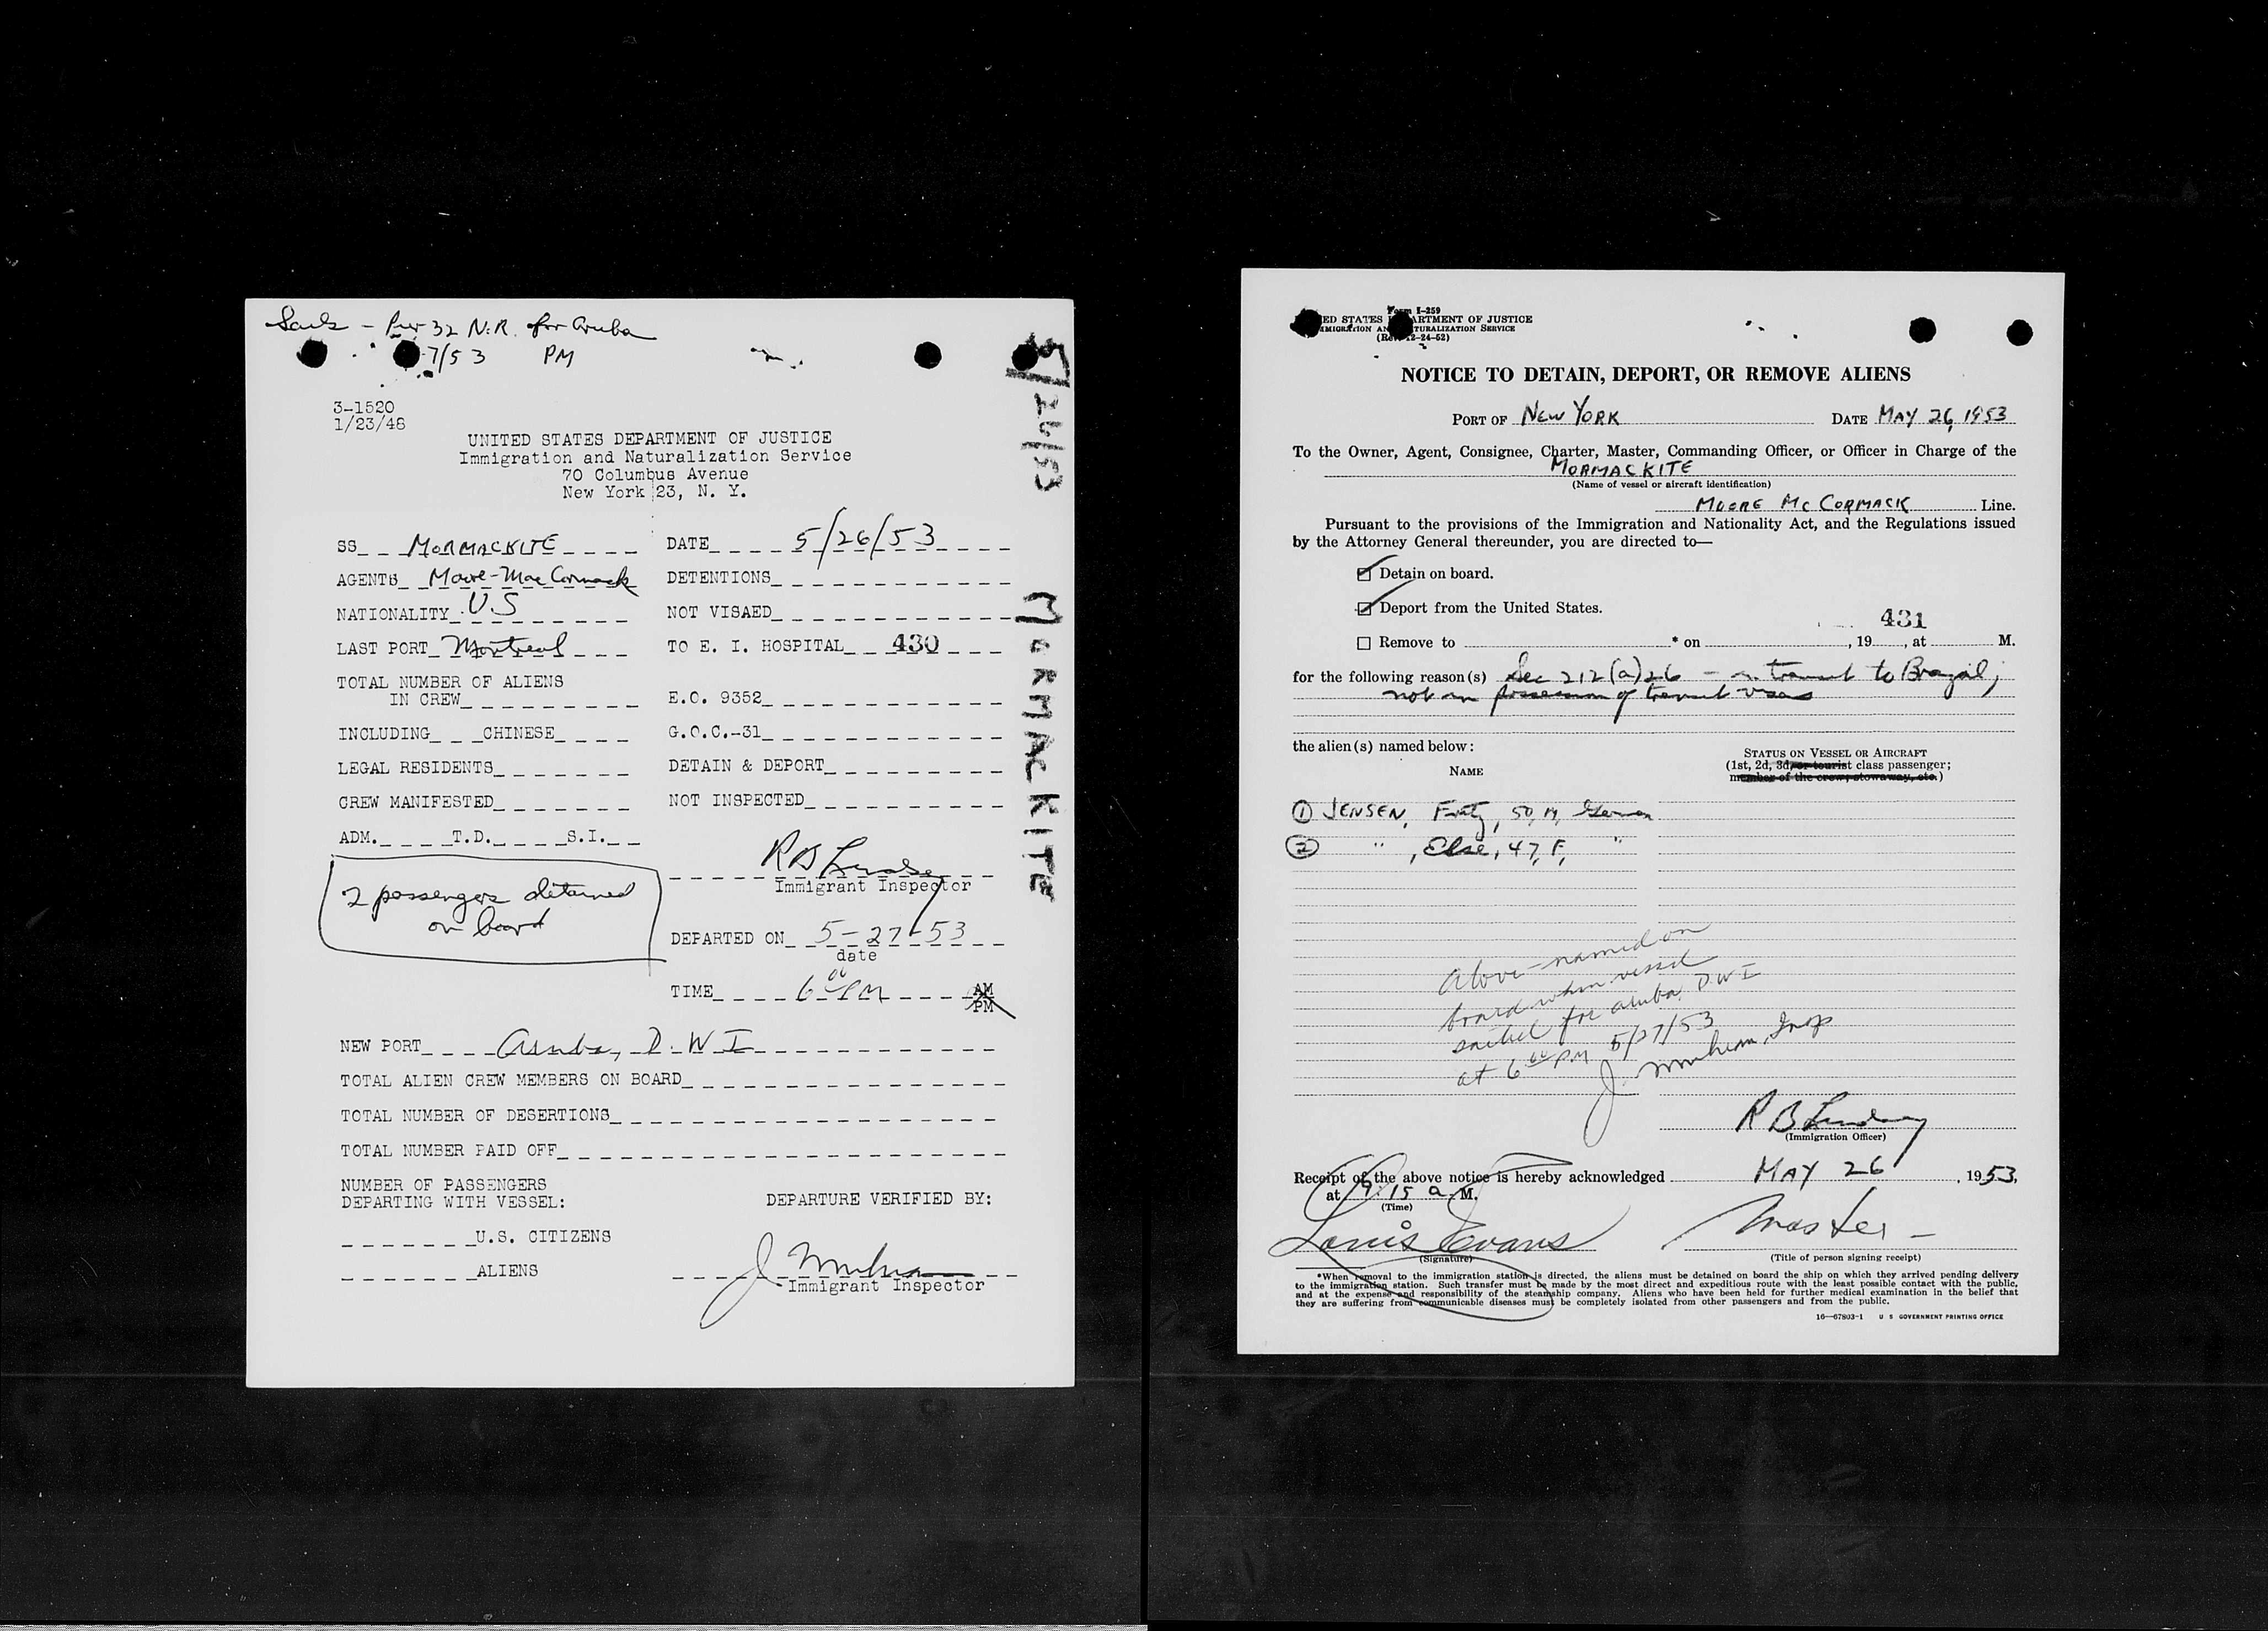 Sails - Pier 32 N.R. for Aruba
7/53 PM
5/26/53 MORMACKITE
3-1520
1/23/48
UNITED STATES DEPARTMENT OF JUSTICE
Immigration and Naturalization Service
70 Columbus Avenue
New York 23, N. Y.
SS MORMACKITE DATE 5/26/53
AGENTS Moore-MacCormack DETENTIONS
NATIONALITY U.S NOT VISAED
LAST PORT Montreal TO E. I. HOSPITAL 430
TOTAL NUMBER OF ALIENS
IN CREW E.O. 9352
INCLUDING CHINESE G.O.C.-31
LEGAL RESIDENTS DETAIN & DEPORT
CREW MANIFESTED NOT INSPECTED
ADM. T.D. S.I.
R B Lindsay
Immigrant Inspector
2 passengers detained
on board
DEPARTED ON 5-27-53
date
TIME 6 00 PM AM
PM
NEW PORT Aruba, D.W.I
TOTAL ALIEN CREW MEMBERS ON BOARD
TOTAL NUMBER OF DESERTIONS
TOTAL NUMBER PAID OFF
NUMBER OF PASSENGERS
DEPARTING WITH VESSEL: DEPARTURE VERIFIED BY:
U.S. CITIZENS
ALIENS
J.
Immigrant Inspector
Form I-259
ED STATES ARTMENT OF JUSTICE
IMMIGRATION AN TURALIZATION SERVICE
(Rev. 12-24-52)
NOTICE TO DETAIN, DEPORT, OR REMOVE ALIENS
PORT OF NEW YORK DATE MAY 26, 1953
To the Owner, Agent, Consignee, Charter, Master, Commanding Officer, or Officer in Charge of the
MORMACKITE
(Name of vessel or aircraft identification)
MOORE MC CORMACK Line.
Pursuant to the provisions of the Immigration and Nationality Act, and the Regulations issued
by the Attorney General thereunder, you are directed to—
Detain on board.
Deport from the United States.
431
Remove to * on , 19 , at M.
for the following reason(s) Sec 212(a)26 - in transit to Brazil;
not in possession of transit visas
the alien(s) named below:
NAME
STATUS ON VESSEL OR AIRCRAFT
(1st, 2d, 3d, or tourist class passenger;
member of the crew; stowaway, etc.)
1 JENSEN, Fritz, 50, M, German
2 " , Else, 47, F, "
Above-named on
board when vessel
sailed for Aruba, D.W.I
at 6 00 PM 5/27/53
J. Insp
R B Lindsay
(Immigration Officer)
Receipt of the above notice is hereby acknowledged MAY 26, 1953,
at 9:15 a. M.
(Time)
Louis Evans Master -
(Signature) (Title of person signing receipt)
*When removal to the immigration station is directed, the aliens must be detained on board the ship on which they arrived pending delivery
to the immigration station. Such transfer must be made by the most direct and expeditious route with the least possible contact with the public,
and at the expense and responsibility of the steamship company. Aliens who have been held for further medical examination in the belief that
they are suffering from communicable diseases must be completely isolated from other passengers and from the public.
16—67803-1 U S GOVERNMENT PRINTING OFFICE